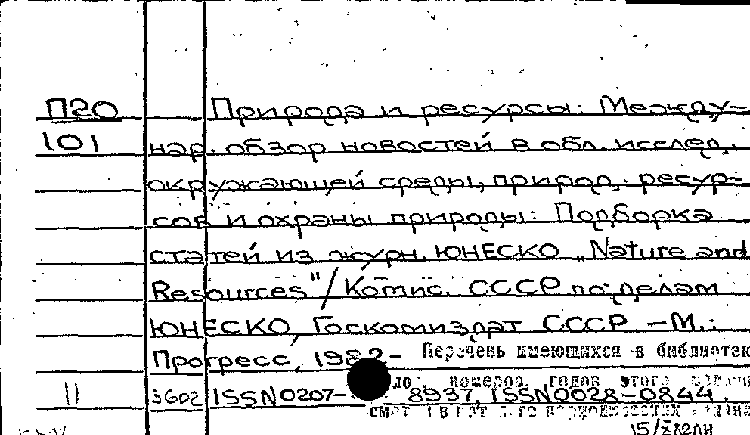 П20 Природа и ресурсы: Между-
101 нар. обзор новостей в обл. исслед.
окружающей среды, природ. ресур-
сов и охраны природы: Подборка
статей из журн. ЮНЕСКО „Nature and
Resources"/Комис. СССР по делам
ЮНЕСКО, Госкомиздат СССР –М.:
Прогресс, 1982- Перечень имеющихся в библиотек
номеров, годов этого
11 3602 ISSN0207- 8937, ISSN0028-0844.